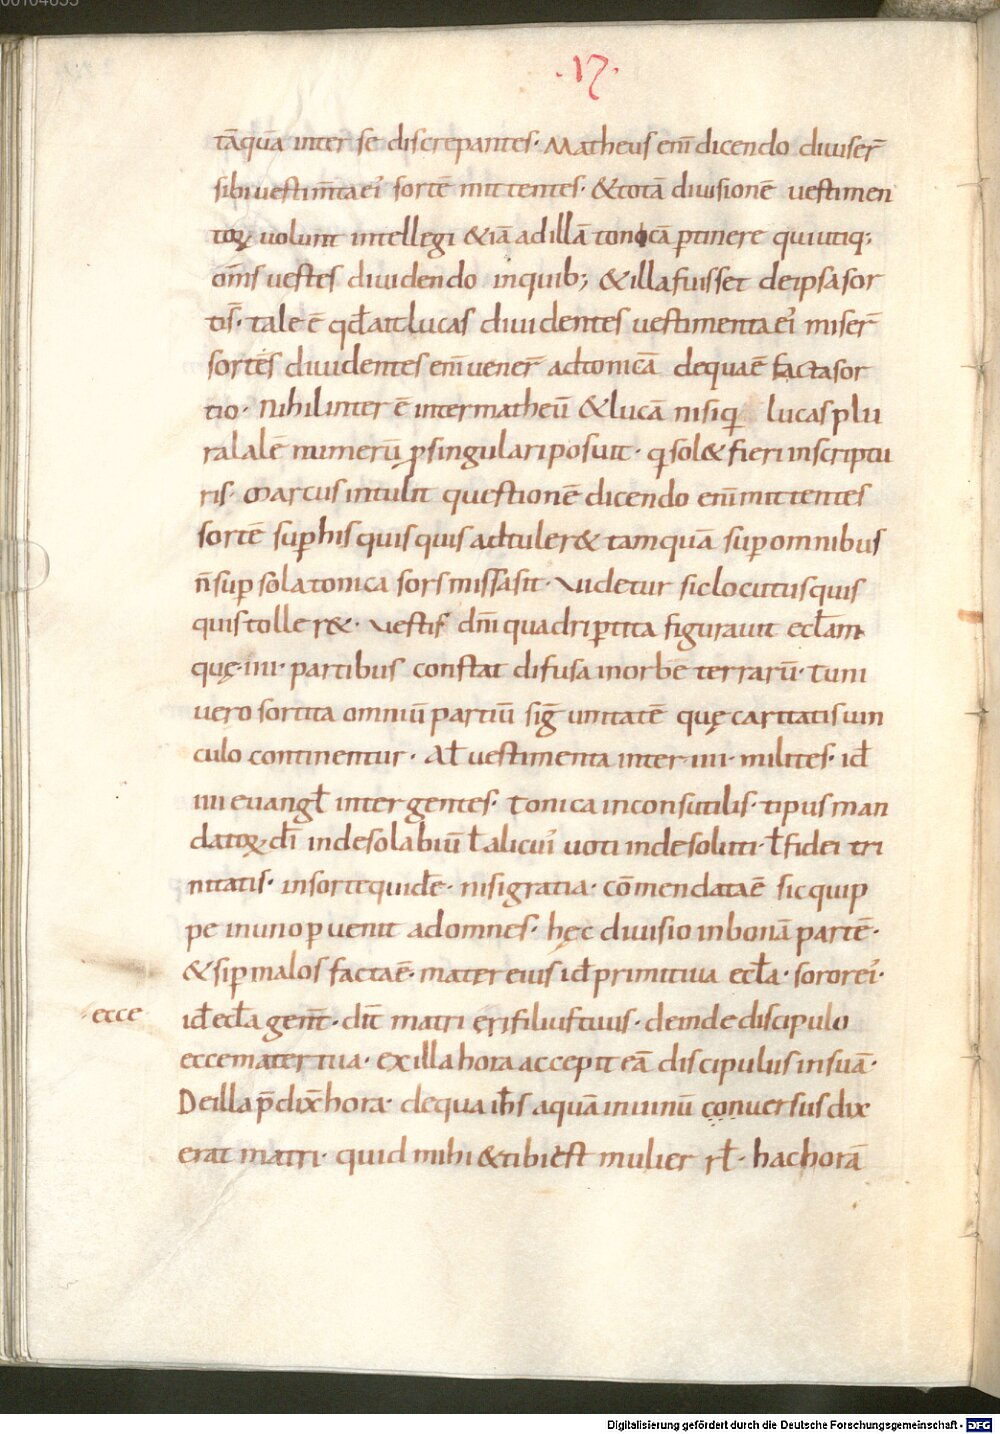 00104055
.17.
tāquā inter se discrepantes· Matheus enī dicendo diuiser̄
sibi uestim̄ta ei' sortē mittentes· & totā diuisionē uestimen
toꝝ uolunt intellegi & iā ad illā tonicā ꝑtinere qui utiq;
om̄s uestes diuidendo in quib; & illa fuisset de ipsa sor
tis̄· tale ē qđ ait lucas diuidentes uestimenta ei' miser̄
sortes diuidentes enī uener̄ ad tonicā de qua ē facta sor
tio· Nihil inter ē inter matheū & lucā nisi qi lucas plu
ralalē numerū ꝑ singulari posuit· q sol& fieri in scriptu
ris· Marcus intulit questionē dicendo enī mittentes
sortē suꝑ his quis quis adtuler& tamquā suꝑ omnibus
n̄ suꝑ sola tonica sors missa sit· Videtur sic locutus quis
quis toller&· Vestis dn̄i quadriꝑtita figurauit ecłam
quę· iiii· partibus constat difusa in orbe terrarū· Tuni
uero sortita omniū partiū siḡ unitatē quę caritatis uin
culo continentur· Ał uestimenta inter· iiii· milites· id̄
iiii euangł inter gentes· Tonica inconsutilis· tipus man
datoꝝ dī indesolabiū ł alicui' uoti indesoliti· ł fidei tri
nitatis· in sorte quidē· nisi gratia· cōmendata ē sic quip
pe in uno ꝑuenit ad omnes· hęc diuisio in bonā partē·
& si ꝑ malos facta ē· mater eius id̄ primitiua ecła· soror ei'·
ecce id̄ ecła genт̄· dix̄ matri eri filius tuus· deinde discipulo
ecce mater tua· ex illa hora accepit eā discipulus in suā·
De illa p̄dix̄ hora· de qua ih̄s aquā in uinū conuersus dix
erat matri· quid mihi & tibi est mulier rł· hac horā
Digitalisierung gefördert durch die Deutsche Forschungsgemeinschaft - DFG